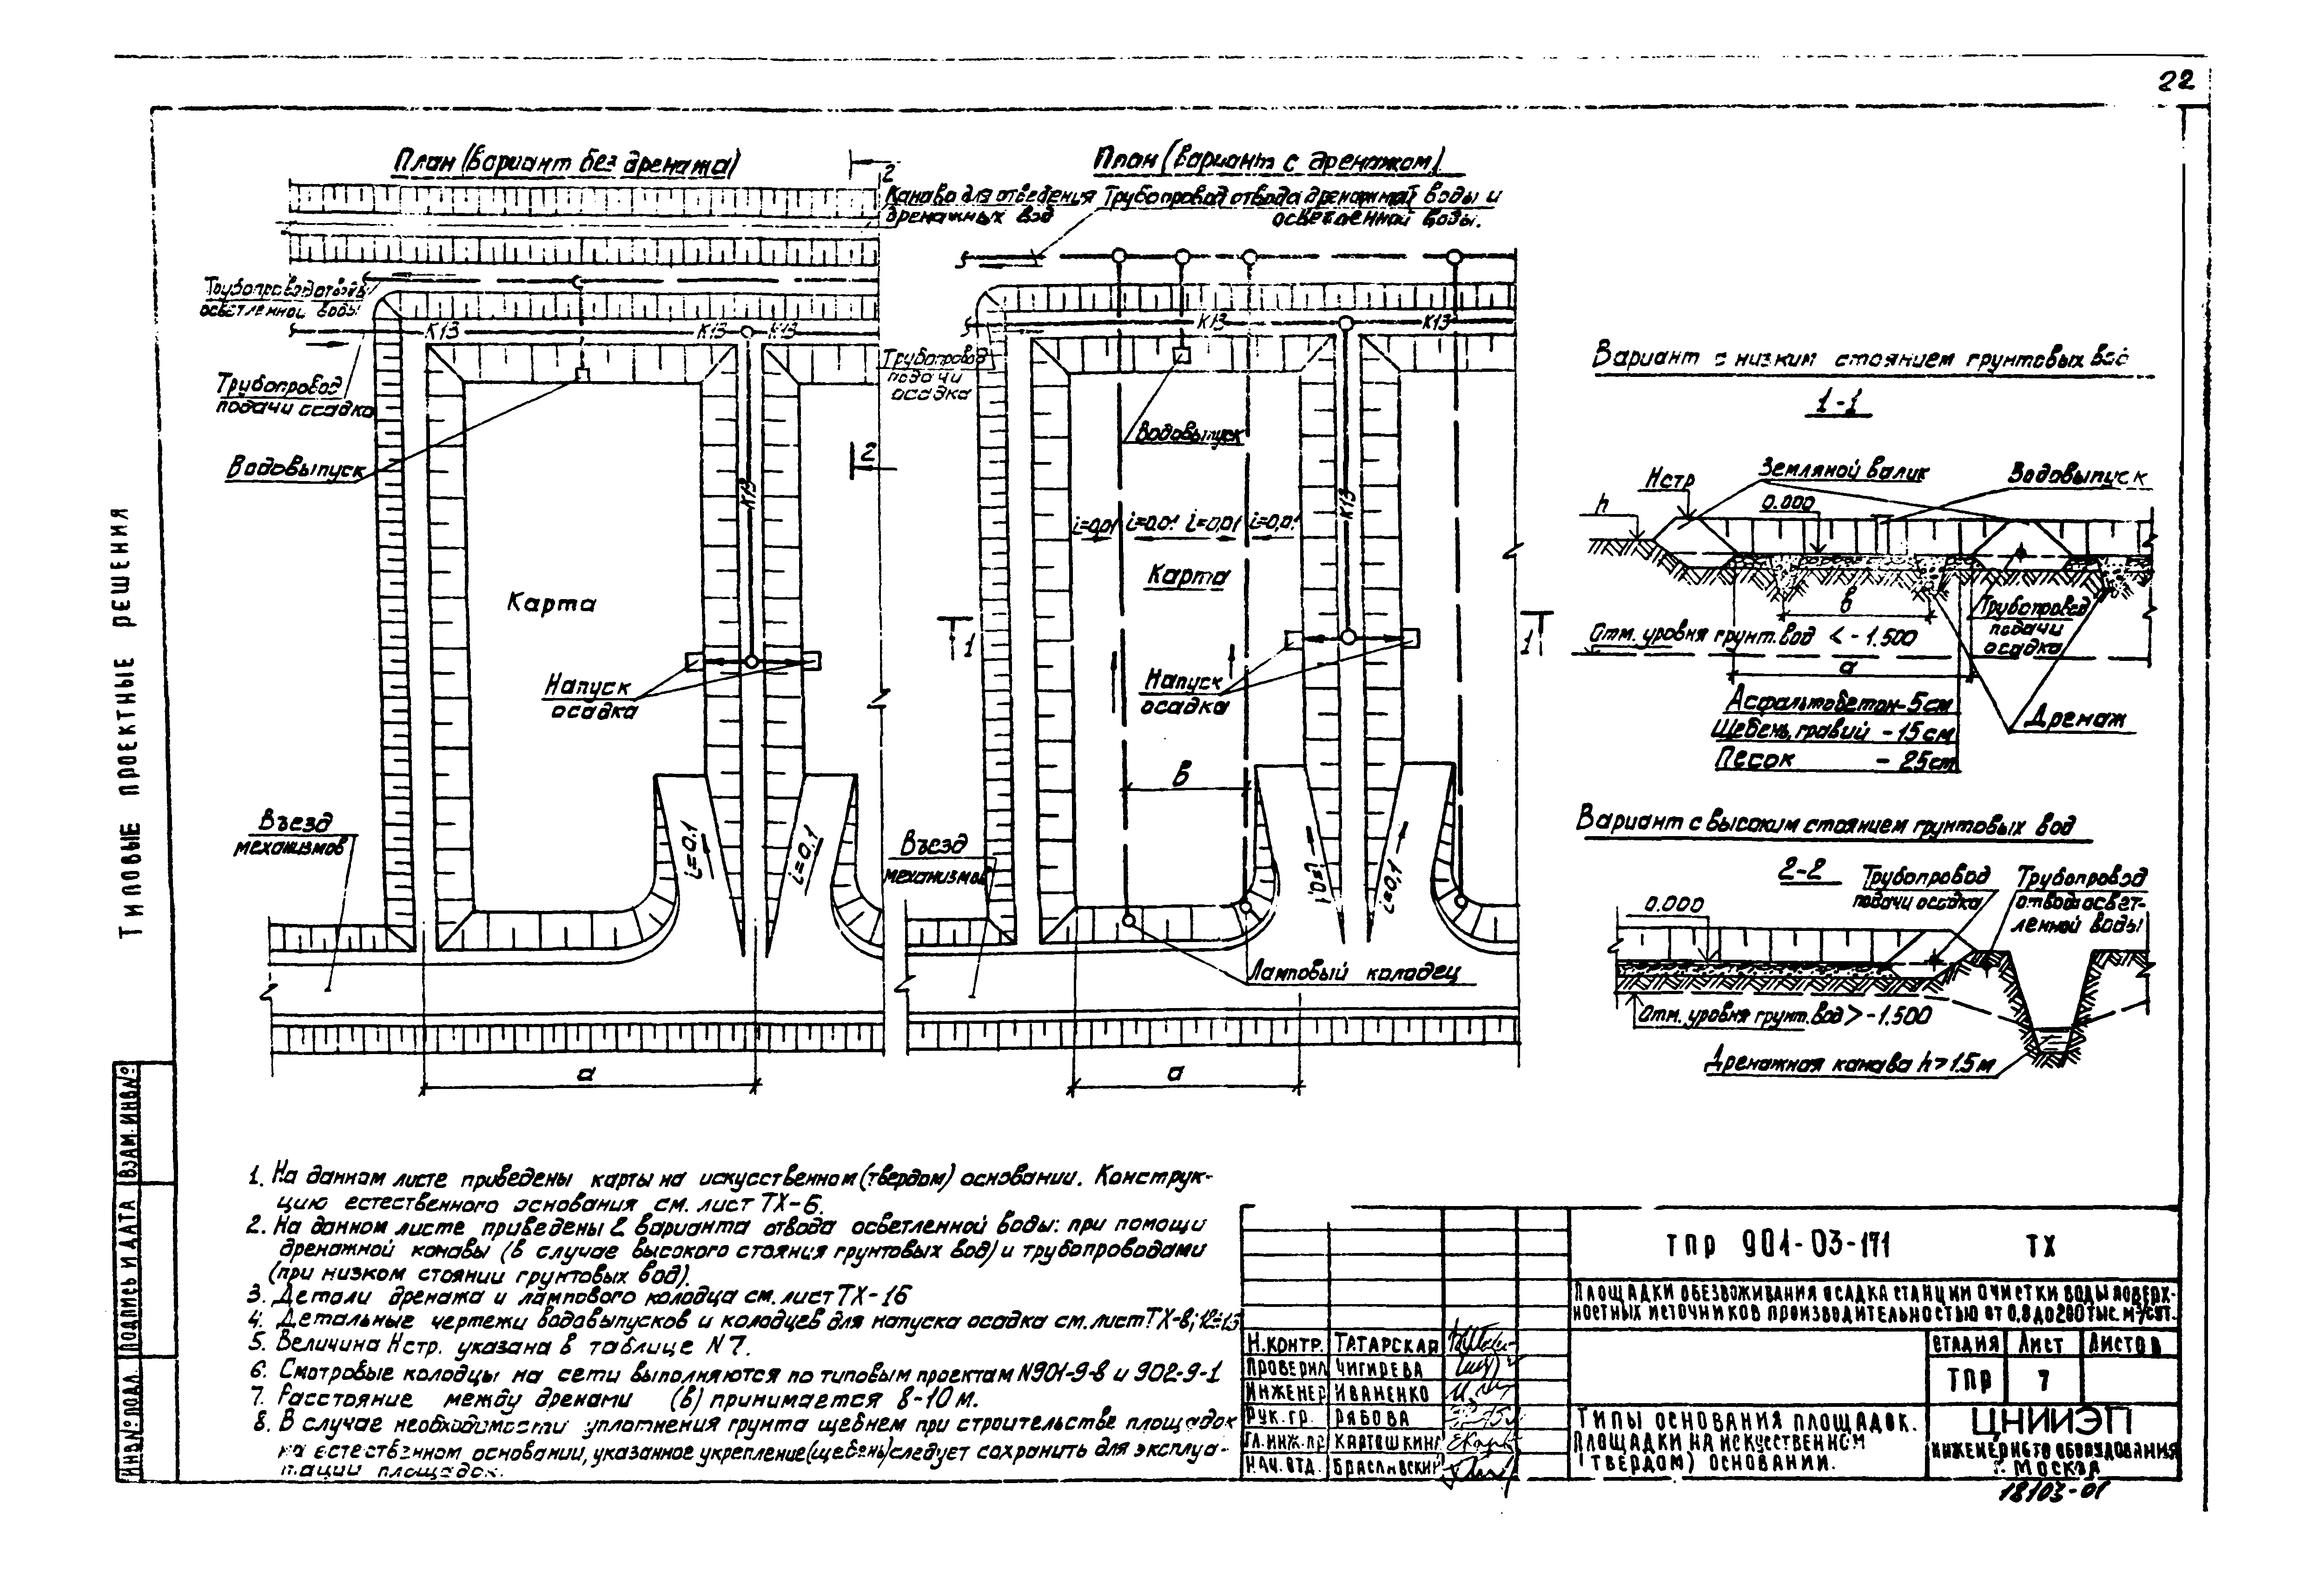 22
ТИПОВЫЕ ПРОЕКТНЫЕ РЕШЕНИЯ
План (Вариант без дренажа)
2
Канава для отведения
дренажных вод
Трубопровод
осветленной воды
К13
К13
К13
Трубопровод
подачи осадка
Водовыпуск
2
К13
Карта
Напуск
осадка
Въезд
механизмов
i=0,1
i=0,1
а
План (Вариант с дренажом)
Трубопровод отвода дренажной воды и
осветленной воды.
К13
К13
Трубопровод
подачи
осадка
Водовыпуск
К13
i=0,01
i=0,01
i=0,01
i=0,01
Карта
1
1
Напуск
осадка
в
Въезд
механизмов
i=0,1
i=0,1
Ламповый колодец
а
Вариант с низким стоянием грунтовых вод
1-1
Земляной валик
Водовыпуск
Нстр
h
0.000
в
Трубопровод
подачи
осадка
Отм. уровня грунт. вод < -1.500
а
Асфальтобетон-5см
Щебень, гравий - 15см
Песок - 25см
Дренаж
Вариант с высоким стоянием грунтовых вод
2-2
Трубопровод
подачи осадка
Трубопровод
отвода освет-
ленной воды
0.000
Отм. уровня грунт. вод > -1.500
Дренажная канава h>1.5м
1. На данном листе приведены карты на искусственном (твердом) основании. Конструк-
цию естественного основания см. лист ТХ-6.
2. На данном листе приведены 2 варианта отвода осветленной воды: при помощи
дренажной канавы (в случае высокого стояния грунтовых вод) и трубопроводами
(при низком стоянии грунтовых вод).
3. Детали дренажа и лампового колодца см. лист ТХ-16
4. Детальные чертежи водовыпусков и колодцев для напуска осадка см. лист ТХ-8; 12÷15
5. Величина Нстр. указана в таблице N7.
6. Смотровые колодцы на сети выполняются по типовым проектам N901-9-8 и 902-9-1
7. Расстояние между дренами (в) принимается 8-10 м.
8. В случае необходимости уплотнения грунта щебнем при строительстве площадок
на естественном основании, указанное укрепление (щебень) следует сохранить для эксплуа-
тации площадок.
ВЗАМ. ИНВ№
ПОДПИСЬ И ДАТА
ИНВ№ ПОДЛ.
ТПР 901-03-171 ТХ
ПЛОЩАДКИ ОБЕЗВОЖИВАНИЯ ОСАДКА СТАНЦИИ ОЧИСТКИ ВОДЫ ПОВЕРХ-
НОСТНЫХ ИСТОЧНИКОВ ПРОИЗВОДИТЕЛЬНОСТЬЮ ОТ 0,8 ДО 200 ТЫС. М³/СУТ.
Н.КОНТР. ТАТАРСКАЯ
ПРОВЕРИЛ ЧИГИРЕВА
ИНЖЕНЕР ИВАНЕНКО
РУК. ГР. РЯБОВА
ГЛ. ИНЖ. ПР КАРТАШКИНА
НАЧ. ОТД. БРАСЛАВСКИЙ
СТАДИЯ ЛИСТ ЛИСТОВ
ТПР 7
ТИПЫ ОСНОВАНИЯ ПЛОЩАДОК.
ПЛОЩАДКИ НА ИСКУССТВЕННОМ
(ТВЕРДОМ) ОСНОВАНИИ.
ЦНИИЭП
ИНЖЕНЕРНОГО ОБОРУДОВАНИЯ
Г. МОСКВА
18103-01